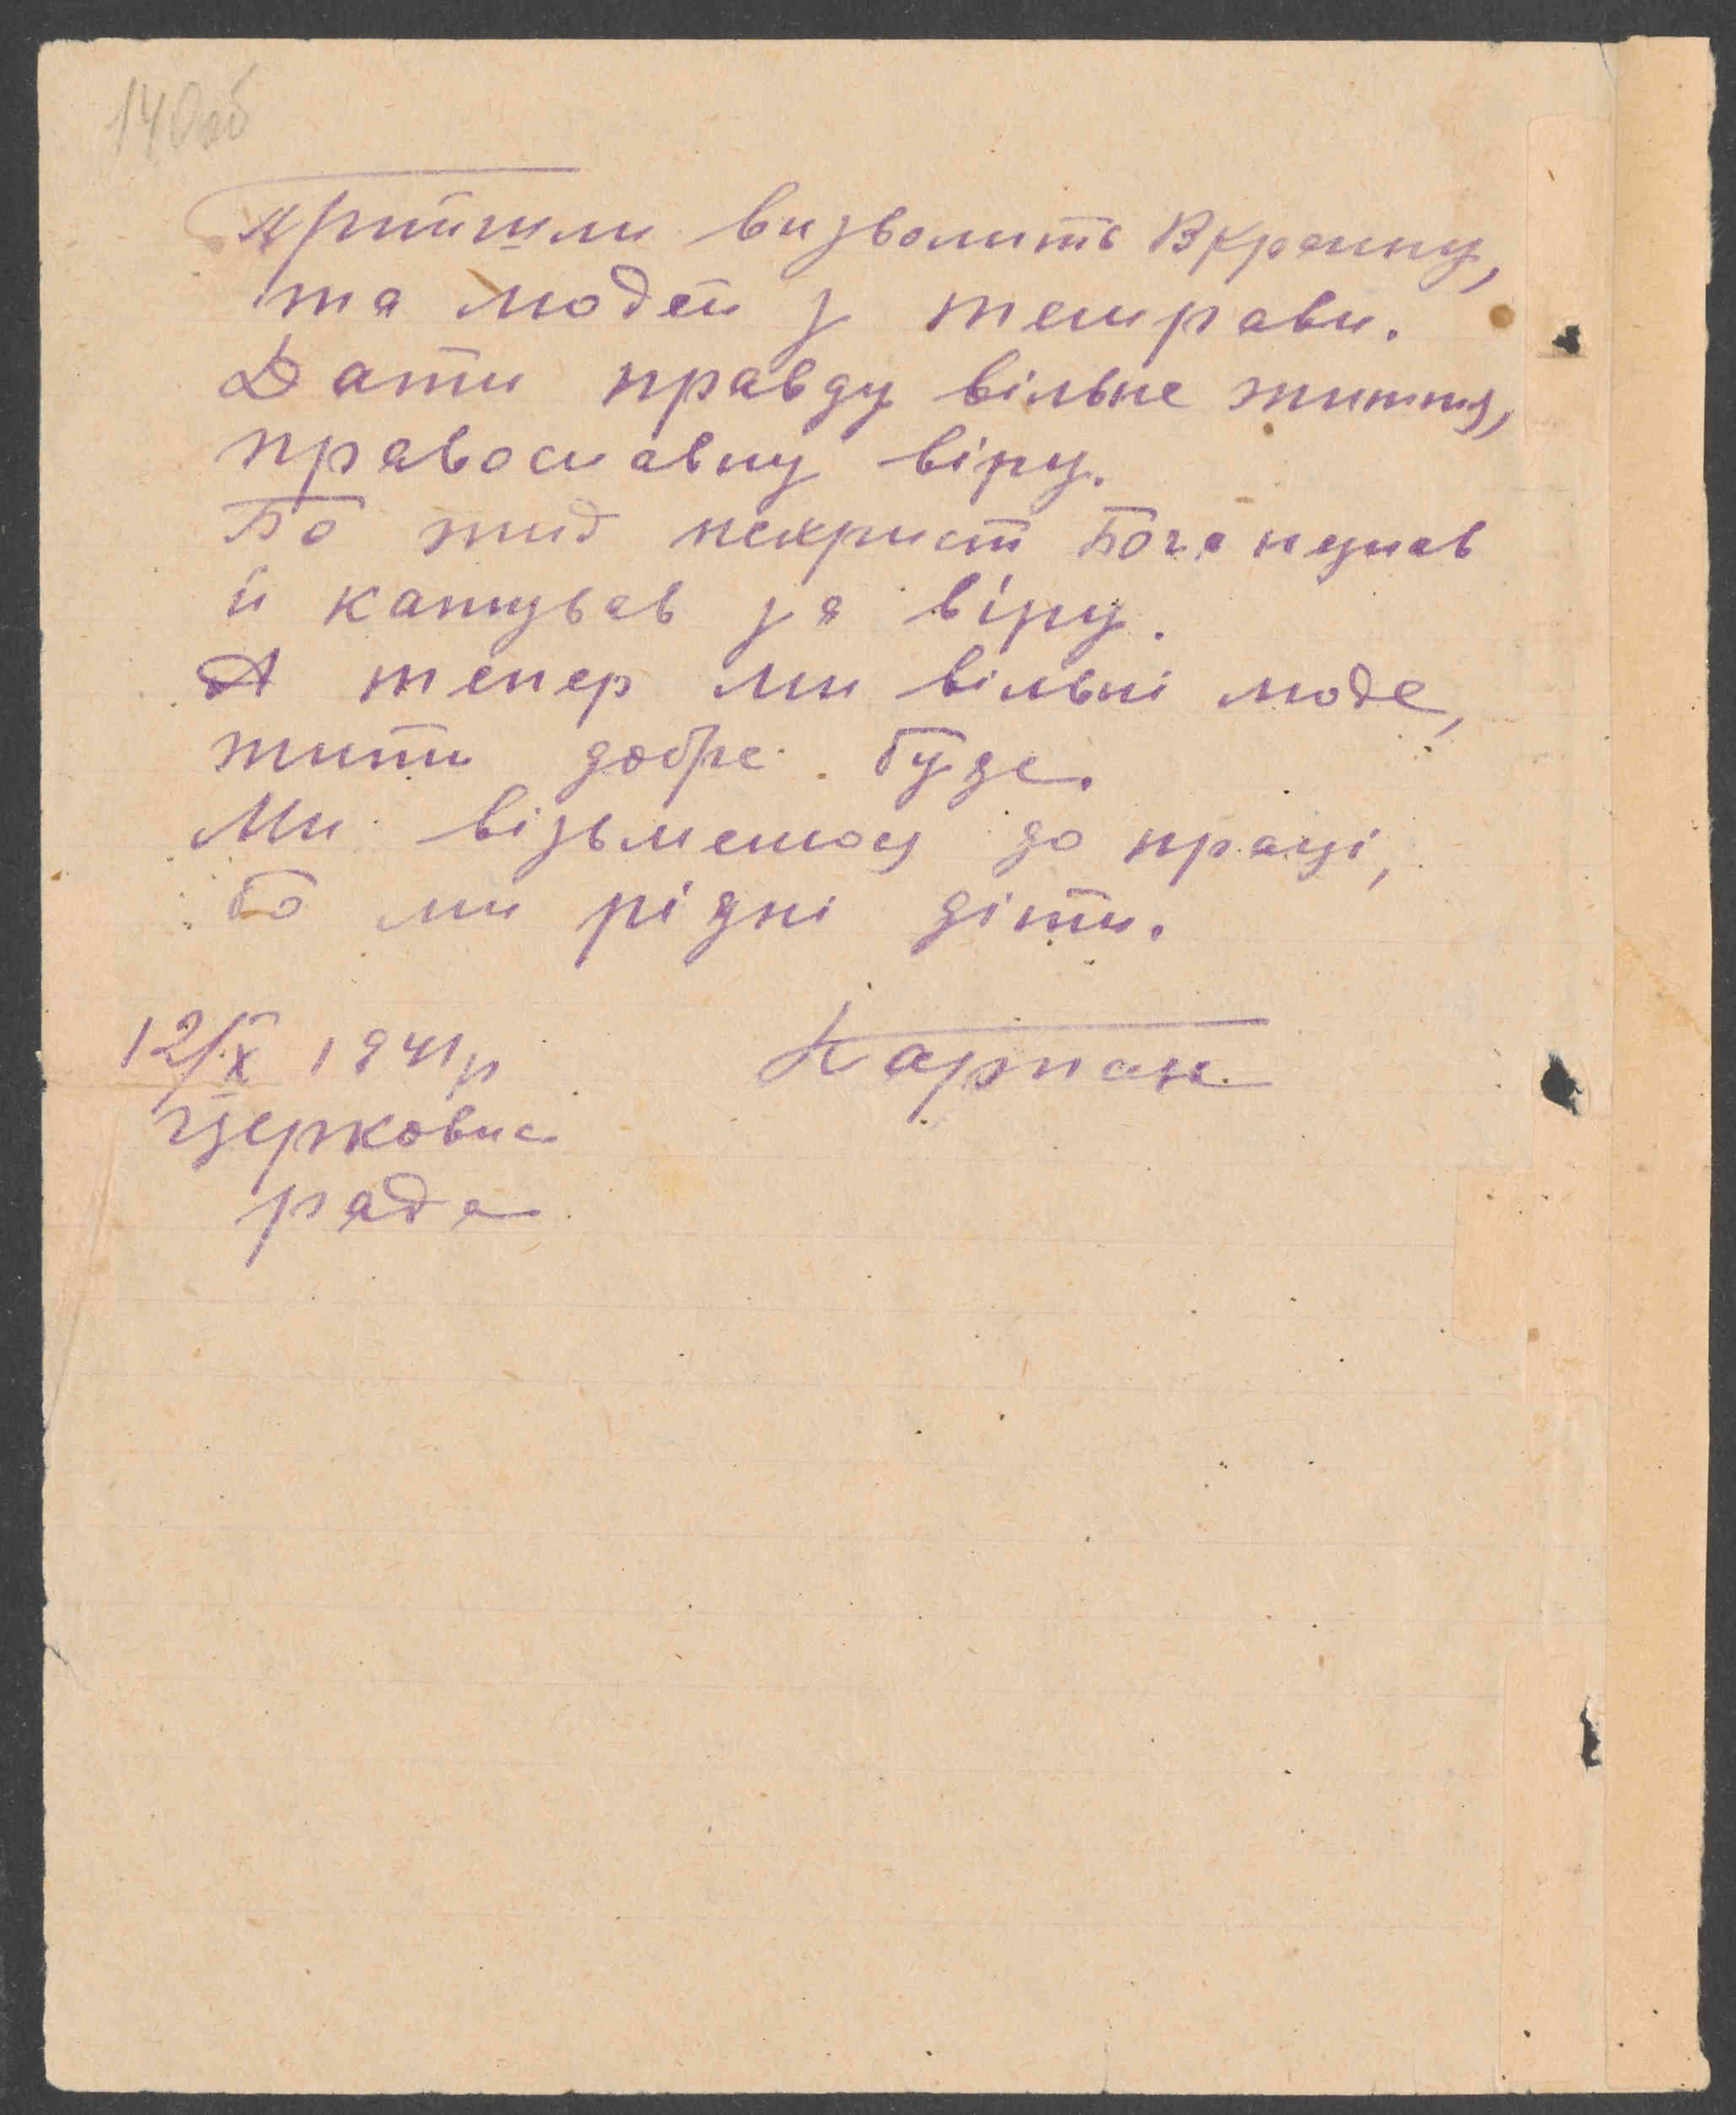 14 Об
прийшли визволить Вкраину,
та людей з темрави.
Дати правду вільне життя,
православну віру.
Бо жид нехрист Бога незнав
й катував за віру.
А тепер ми вільні люде,
жити добре буде.
Ми візьмемось до праці,
бо ми рідні діти.
12/IX 1941р Карпан
Церковна
рада